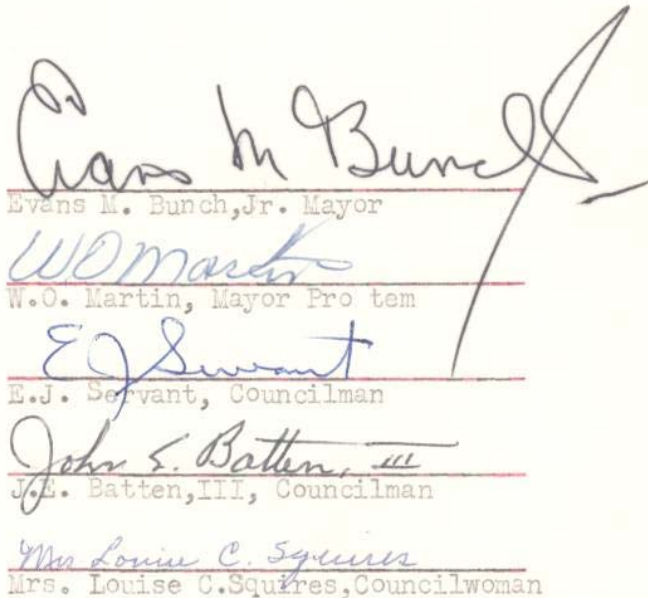 Evans M Bunch Jr
Evans M. Bunch,Jr. Mayor
W O Martin
W.O. Martin, Mayor Pro tem
E J Servant
E.J. Servant, Councilman
John E. Batten, III
J.E. Batten,III, Councilman
Mrs Louise C. Squires
Mrs. Louise C.Squires,Councilwoman